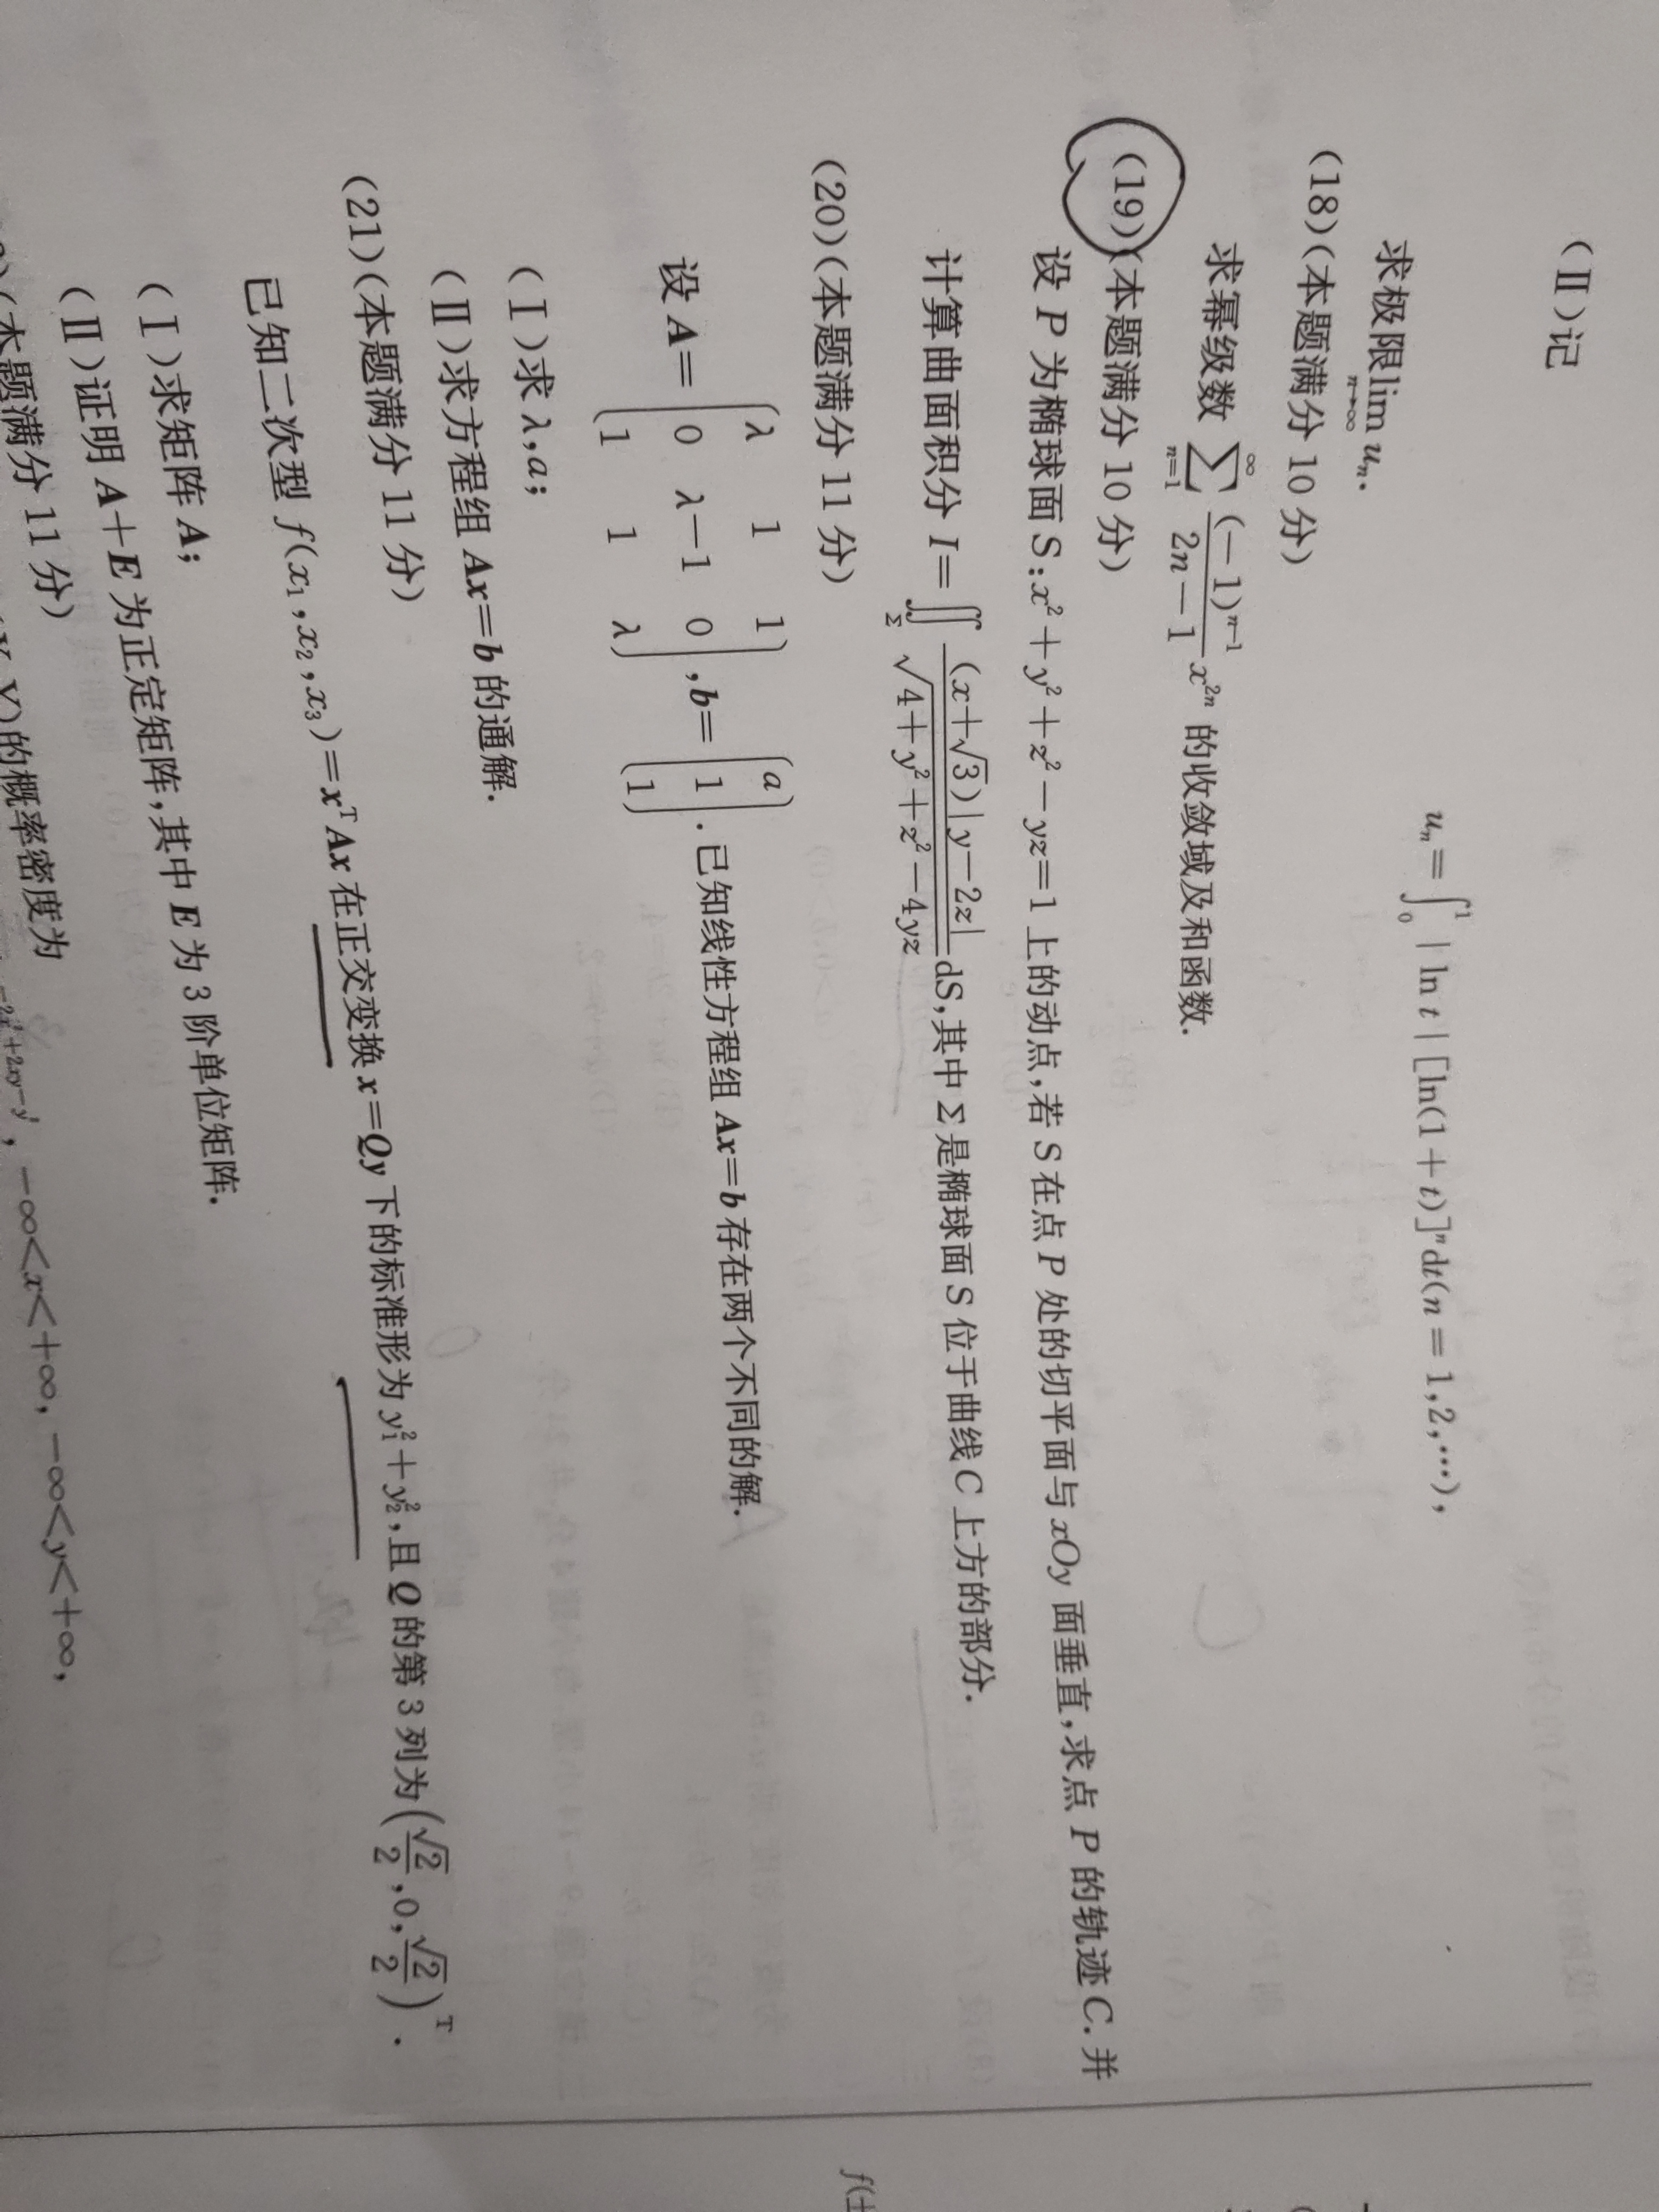 (Ⅱ)记
u_n=∫_0^1 |ln t|[ln(1+t)]^n dt(n=1,2,…),
求极限lim_{n→∞} u_n.
(18)(本题满分 10 分)
求幂级数 ∑_{n=1}^{∞} \frac{(-1)^{n-1}}{2n-1}x^{2n} 的收敛域及和函数.
(19)(本题满分 10 分)
设 P 为椭球面 S:x²+y²+z²-yz=1 上的动点,若 S 在点 P 处的切平面与 xOy 面垂直,求点 P 的轨迹 C. 并
计算曲面积分 I=∬_Σ \frac{(x+√3)|y-2z|}{\sqrt{4+y²+z²-4yz}}dS,其中 Σ 是椭球面 S 位于曲线 C 上方的部分.
(20)(本题满分 11 分)
设 A=\begin{pmatrix} λ & 1 & 1 \\ 0 & λ-1 & 0 \\ 1 & 1 & λ \end{pmatrix},b=\begin{pmatrix} a \\ 1 \\ 1 \end{pmatrix}.已知线性方程组 Ax=b 存在两个不同的解.
(Ⅰ)求 λ,a;
(Ⅱ)求方程组 Ax=b 的通解.
(21)(本题满分 11 分)
已知二次型 f(x₁,x₂,x₃)=xᵀAx 在正交变换 x=Qy 下的标准形为 y₁²+y₂²,且 Q 的第 3 列为(\frac{√2}{2},0,\frac{√2}{2})ᵀ.
(Ⅰ)求矩阵 A;
(Ⅱ)证明 A+E 为正定矩阵,其中 E 为 3 阶单位矩阵.
(本题满分 11 分)
Y)的概率密度为
-2x²+2xy-y², -∞<x<+∞,-∞<y<+∞,